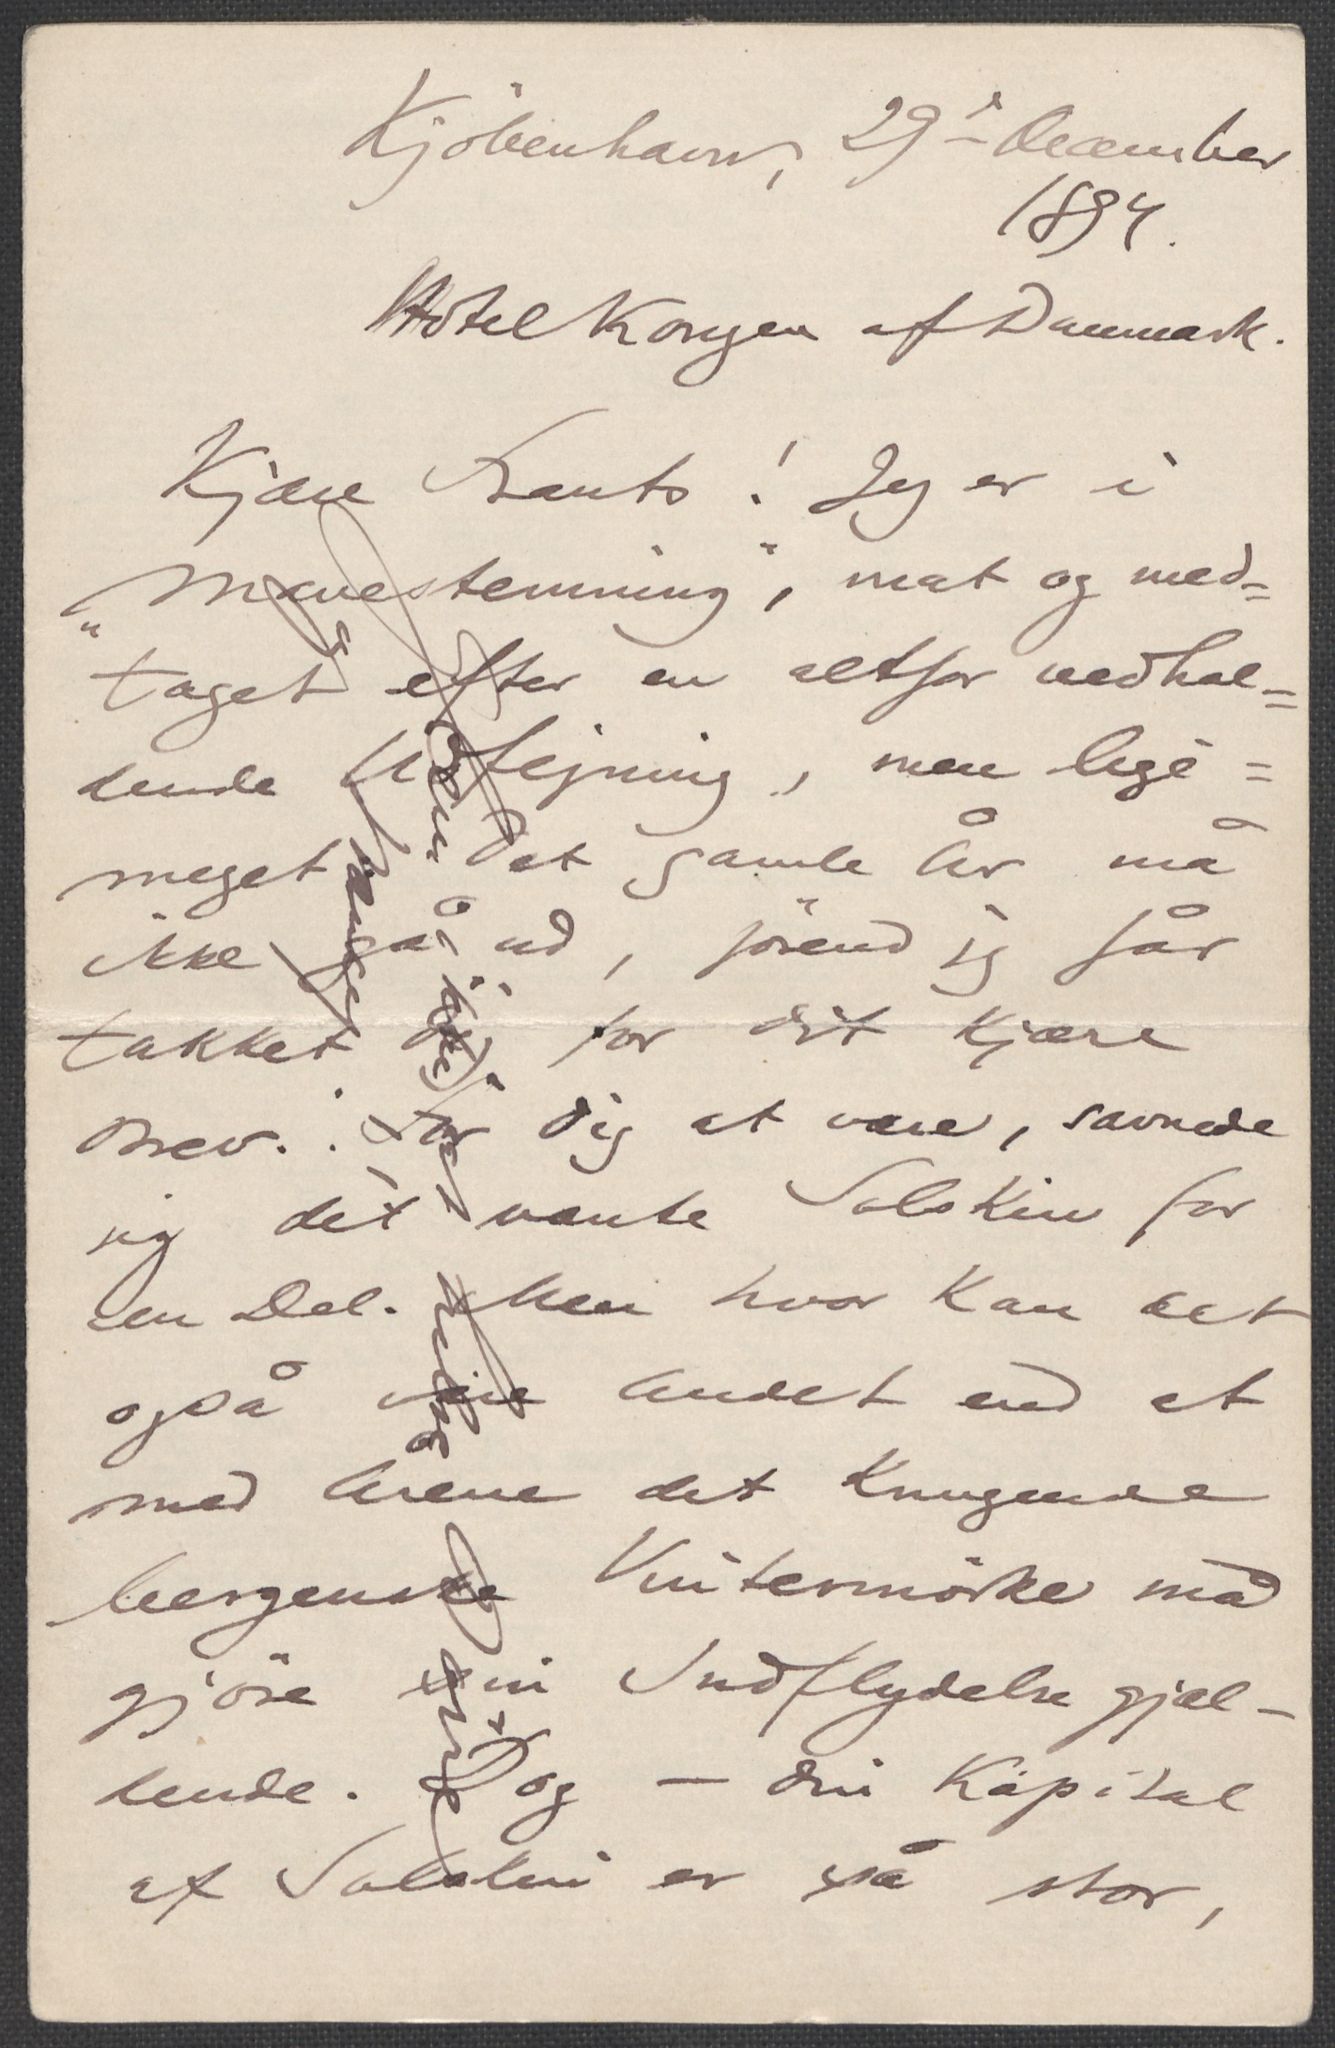 Kjöbenhavn, 29 December
1894.
Hôtel Kongen af Danmark.
Kjære Frants! Jeg er i
"Mavestemning", mat og med=
taget efter en altfor vedhol=
dende Udfejning, men lige=
meget: Det gamle År må
ikke gå ud, förend jeg får
takket dig for dit kjære
Brev. For dig at være, savnede
jeg det vante Solskin for
en Del. Men hvor kan det
også være Andet end at
med Årene det knugende
bergenske Vintermörke må
gjöre sin Indflydelse gjæl-
dende. Dog – din Kapital
af Solskin er så stor,